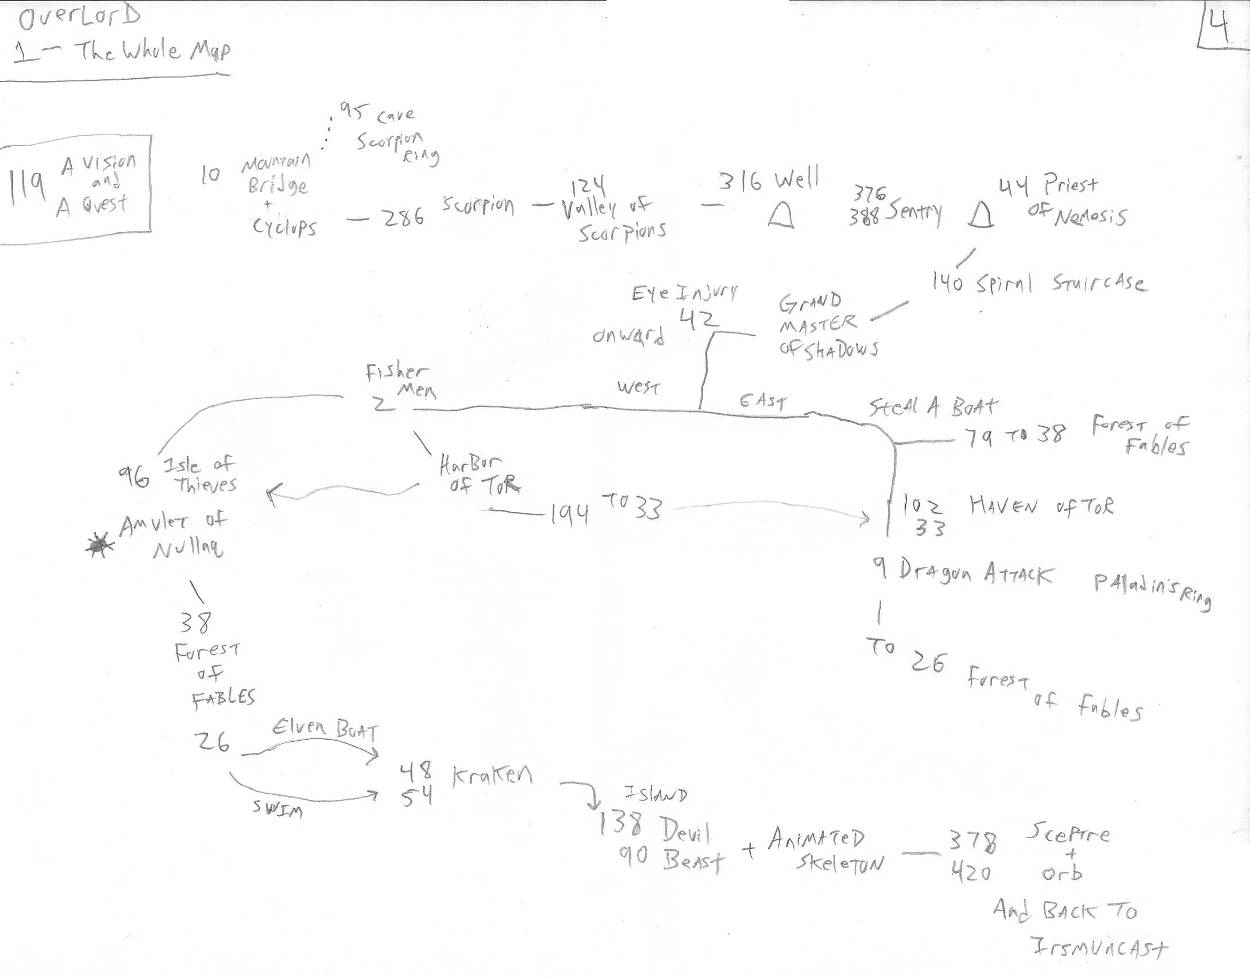 OverLorD
1 - The Whole Map
4
119 A Vision
and
A Quest
10 Mountain
Bridge
+
Cyclops
95 cave
Scorpion
Ring
286 Scorpion
124
Valley of
Scorpions
316 Well
376
388 Sentry
44 Priest
of Nemosis
140 Spiral Staircase
GRAND
MASTER
OF SHADOWS
Eye Injury
42
onward
West
EAST
Fisher
Men
2
Steal A BoAt
79 to 38 Forest of
Fables
96 Isle of
Thieves
Amulet of
Nullaq
HarBor
of ToR
194 to 33
102 HAVEN of ToR
33
9 Dragon ATTACK Paladin's Ring
To 26 Forest
of Fables
38
Forest
of
FABLES
26
Elven BoAT
SWIM
48 Kraken
54
ISLAND
138 Devil
90 Beast
+ ANIMATED
SKeleTON
378 Sceptre
+
420 Orb
And BACK To
IrsmuncAst